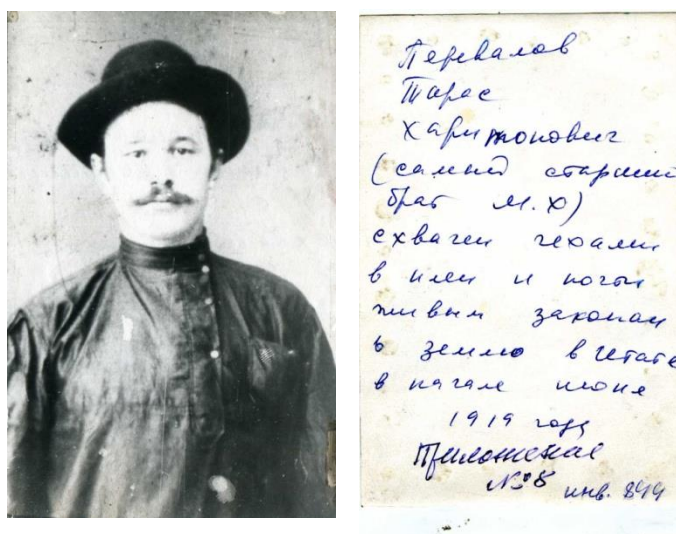 Перевалов
Тарас
Харитонович
(самый старший
брат М.Х)
схвачен чехами
в плен и почти
живым закопан
в землю в
в начале июня
1919 году
Приложение
№8 инв. 899